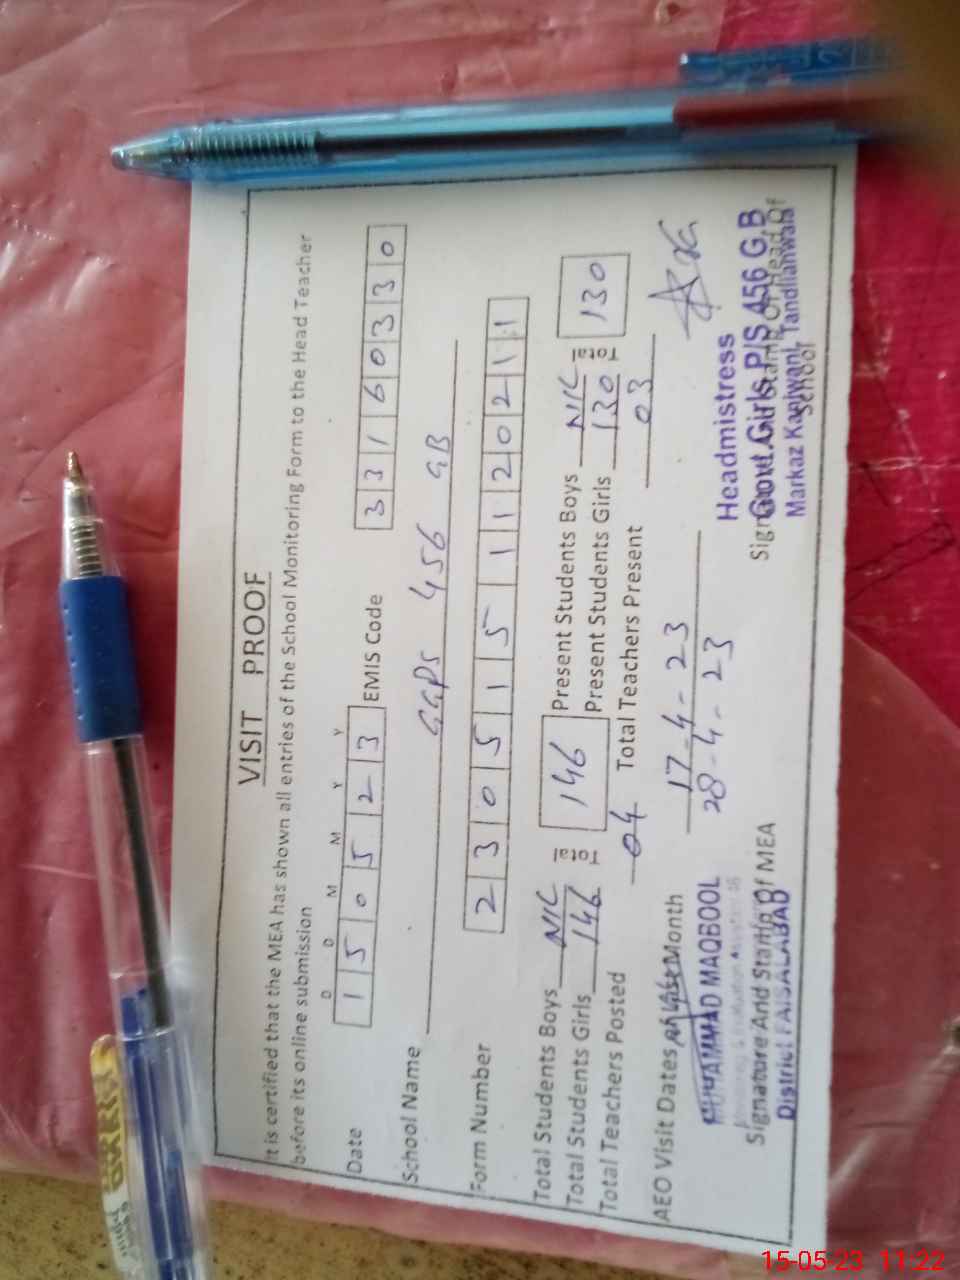 VISIT PROOF
It is certified that the MEA has shown all entries of the School Monitoring Form to the Head Teacher
before its online submission
D D M M Y Y
Date 1 5 0 5 2 3 EMIS Code 3 3 1 6 0 3 3 0
School Name GGPS 456 GB
Form Number 2 3 0 5 1 5 1 1 2 0 2 1 1
Total Students Boys NIL Total 146 Present Students Boys NIL Total 130
Total Students Girls 146 Present Students Girls 130
Total Teachers Posted 04 Total Teachers Present 03
AEO Visit Dates Month 17-4-23
28-4-23
MUHAMMAD MAQBOOL
Signature And Stamp Of MEA
District FAISALABAD
Headmistress
Govt. Girls P/S 456 G.B
Signature And Stamp Of Head Of
Markaz Tandlianwala
School
15-05-23 11:22